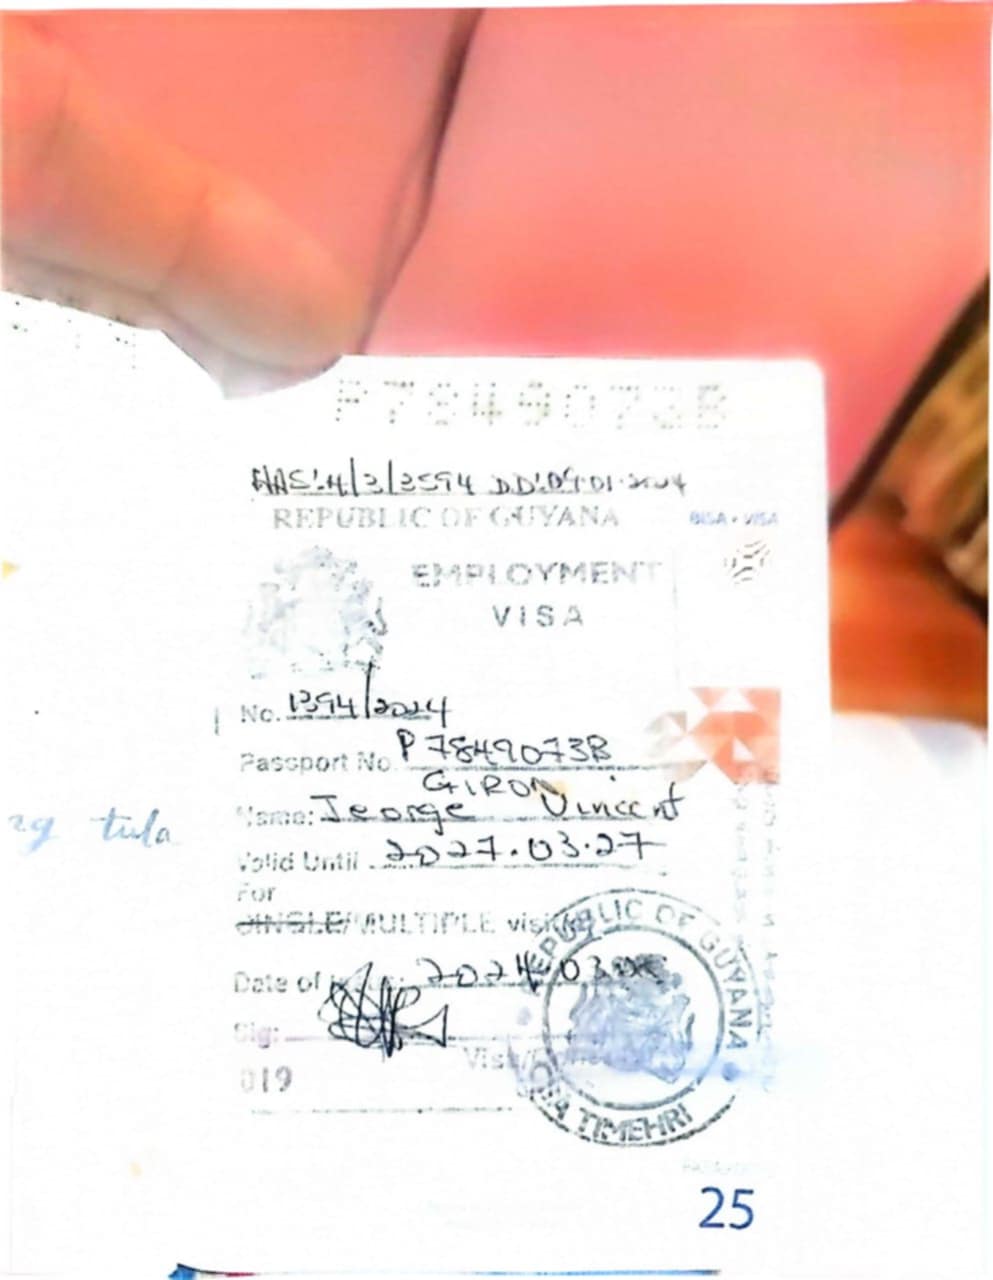 P7849073B
HAS:4/3/3594 DD:09.01.2024
REPUBLIC OF GUYANA
BISA • VISA
EMPLOYMENT
VISA
No. 1394/2024
Passport No. P7849073B
GIRON
Name: Jeorge Vincent
zg tula
Valid Until 2027.03.27
For
SINGLE/MULTIPLE visit(s)
Date of 2024.03
Sig:
019
REPUBLIC OF GUYANA
CJIA TIMEHRI
25